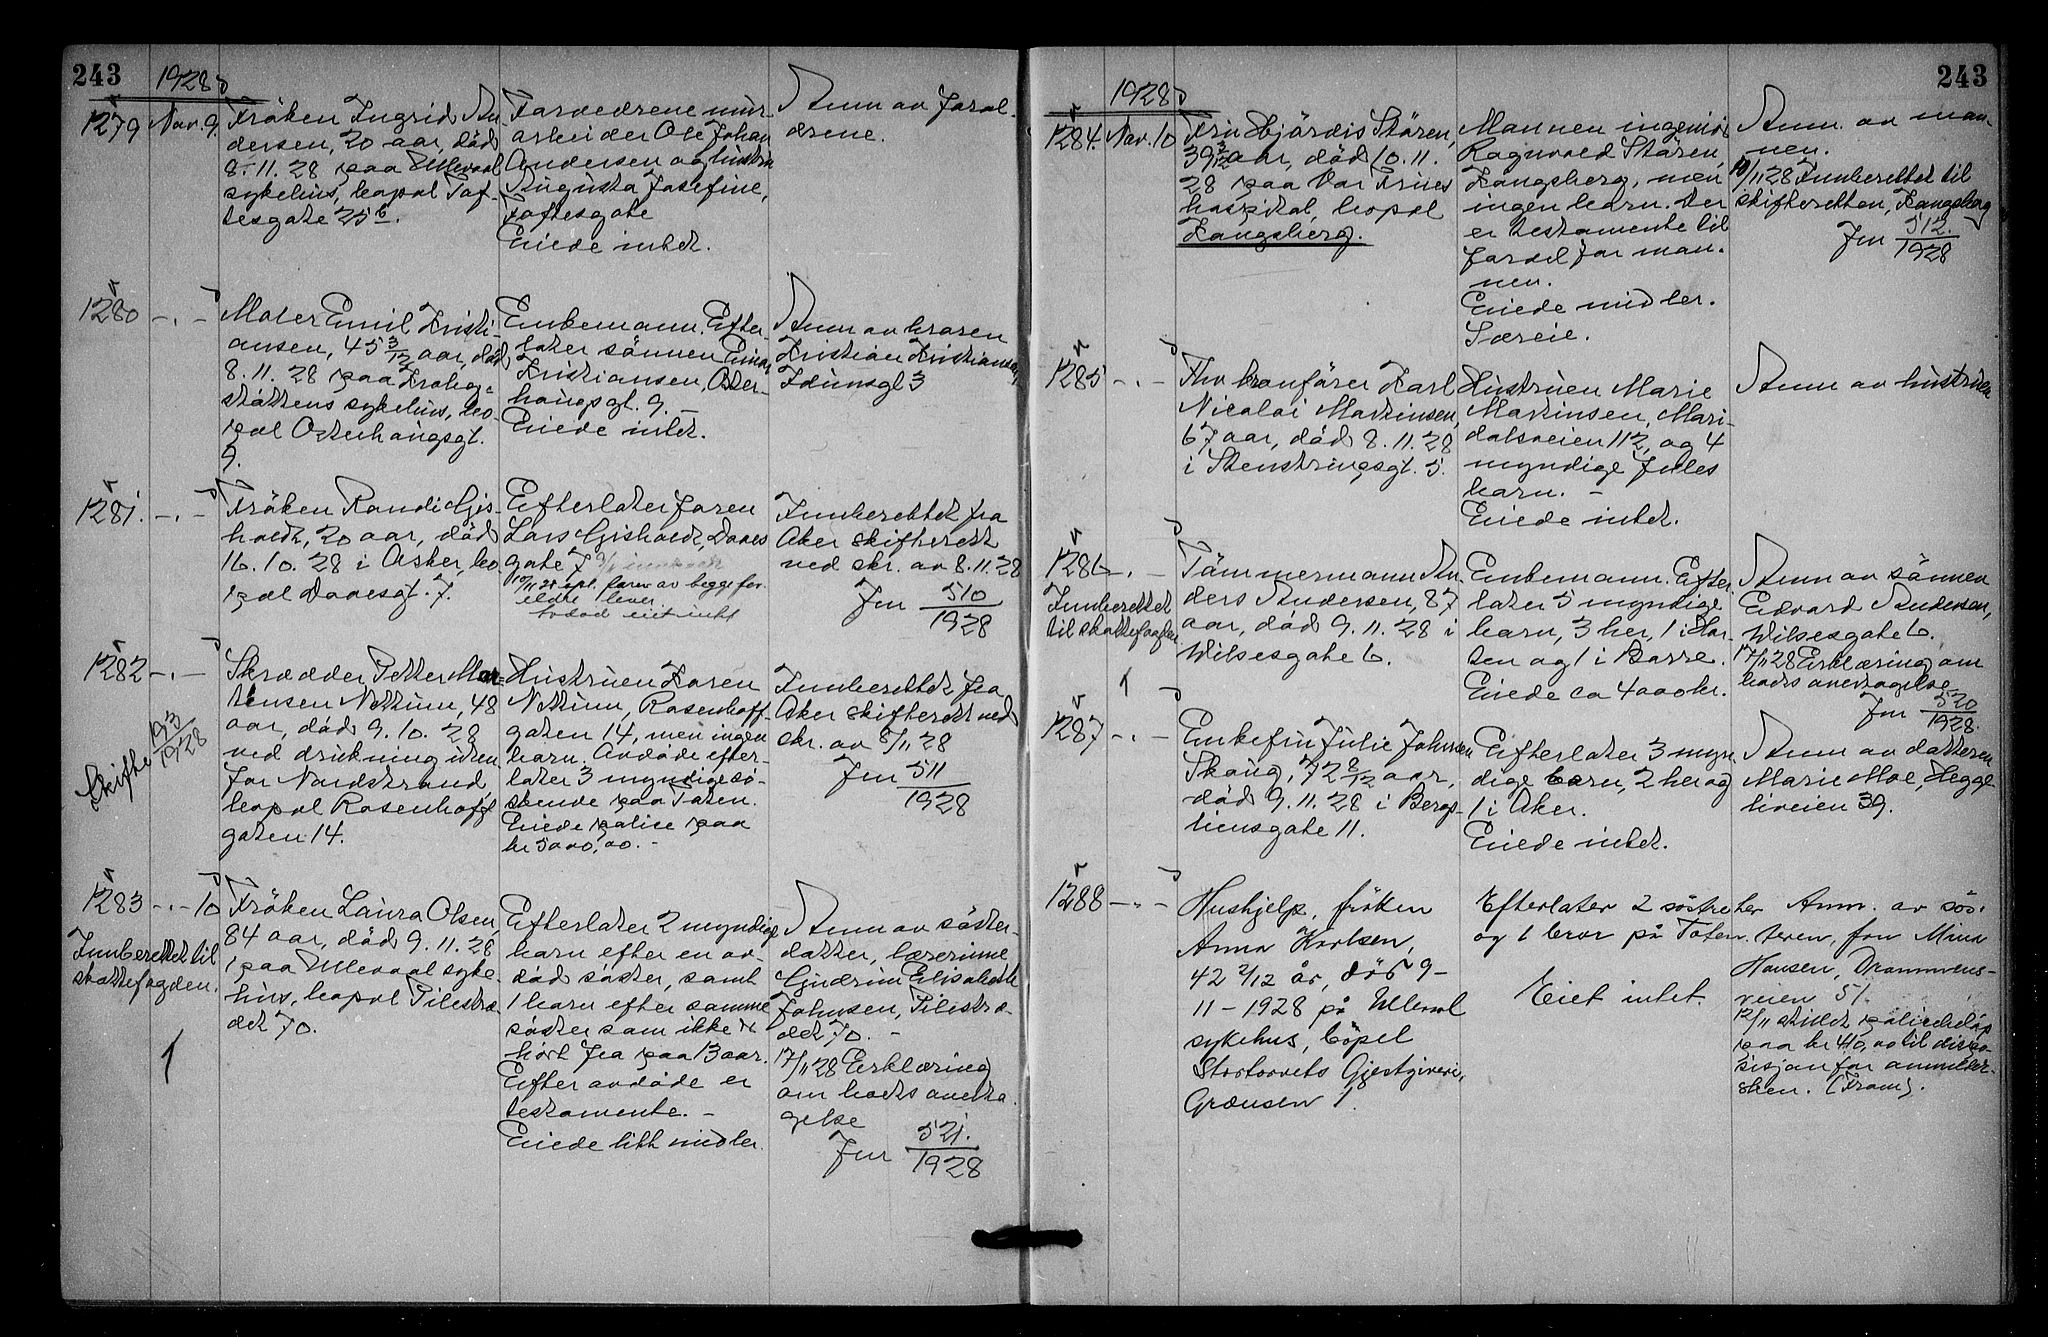 243
1928
1279
Nov. 9.
Fröken Ingrid An-
dersen, 20 aar, död
8. 11. 28 paa Ullevaal
sykehus, bopel Tof-
tesgate 25 b.
Forældrene mur-
arbeider Ole Johan
Andersen og hustru
Augusta Josefine,
Toftesgate
Eiede intet.
Anm av foræl-
drene.
1280
-"-
Maler Emil Kristi-
ansen, 45 3/12 aar, död
8. 11. 28 paa Krohg-
støttens sykehus, bo-
pæl Osterhausgt.
9.
Enkemann. Efter-
later sönnen Einar
Kristiansen, Oster-
hausgt. 9. -
Eiede intet.
Anm av broren
Kristian Kristiansen,
Idunsgt 3
1281.
-"-
Fröken Randi Gjis-
holdt, 20 aar, död
16. 10. 28 i Asker, bo-
pæl Daasgt. 7.
Efterlater faren
Lars Gjisholdt, Daas
gate 7
lever
Innberettet fra
Aker skifterett
ved skr. av 8. 11. 28
Jnr 510/1928
1282
-"-
Skifte 193/1928
Skrædder Petter Mor-
tensen Nettum, 48
aar, död 9. 10. 28
ved drukning uten
for Nordstrand,
bopæl Rosenhoff
gaten 14.
Hustruen Karen
Nettum, Rosenhoff-
gaten 14, men ingen
barn. Avdöde efter-
later 3 myndige sö-
skende paa Toten.
Eiede polise paa
kr 5000,00. -
Innberettet fra
Aker skifterett ved
skr. av 8/11 28
Jnr 511/1928
1283
-"- 10
Innberettet til
skattefogden.
1
Fröken Laura Olsen,
84 aar, död 9. 11. 28
paa Ullevaal syke-
hus, bopæl Pilestræ-
det 70.
Efterlater 2 myndige
barn efter en av-
död söster, samt
1 barn efter samme
söster som ikke er
hört fra paa 13 aar.
Efter avdöde er
testamente. -
Eiede litt midler.
Anm av söster-
datter, lærerinne
Gudrun Elisabeth
Johnsen, Pilestræ-
det 70. -
17/11 28 Erklæring
om boets overta-
gelse
Jnr 521./1928
243
1928
1284.
Nov. 10
Fru Hjördis Stören,
39 3/12 aar, död 10. 11.
28 paa Vor Frues
hospital, bopæl
Kongsberg.
Mannen ingeniör
Ragnvald Stören,
Kongsberg, men
ingen barn. Der
er testamente til
fordel for man-
nen.
Eiede midler.
Særeie.
Anm. av man-
nen.
10/11 28 Innberettet til
skifteretten, Kongsberg
Jnr 512./1928
1285
-"-
Fhv bronförer Karl
Nicolai Martinsen,
67 aar, död 8. 11. 28
i Stenstrupsgt. 5.
Hustruen Marie
Martinsen, Mari-
dalsveien 112, og 4
myndige felles
barn. -
Eiede intet.
Anm av hustruen
1286
-"-
Innberettet
til skattefogden
1
Tömmermann An-
ders Andersen, 87
aar, död 9. 11. 28 i
Wilsesgate 6.
Enkemann. Efter-
later 5 myndige
barn, 3 her, 1 i Hor-
ten og 1 i Borre.
Eiede ca 4000 kr.
Anm av sönnen
Edvard Andersen,
Wilsesgate 6.
17/11 28 Erklæring om
boets overtagelse
Jnr 520/1928.
1287
-"-
Enkefru Julie Johnsen
Skaug, 72 8/12 aar,
död 9. 11. 28 i Bergs-
liensgate 11.
Efterlater 3 myn
dige barn, 2 her og
1 i Aker.
Eiede intet.
Anm av datteren
Marie Moe, Hegge
liveien 39.
1288
-"-
Hushjelp, fröken
Anna Karlsen,
42 2/12 år, död 9-
11-1928 på Ullevål
sykehus, bopel
Stortorvets Gjestgiveri,
Grænsen 1.
Efterlater 2 söstre her
og 1 bror på Toten.
Eiet intet.
Anm. av sös-
teren, fru Mina
Hansen, Drammens-
veien 51.
12/11 stillet politebelöp
paa kr 40,00 til dispo-
sisjon for anmelder-
sken. (Fram).